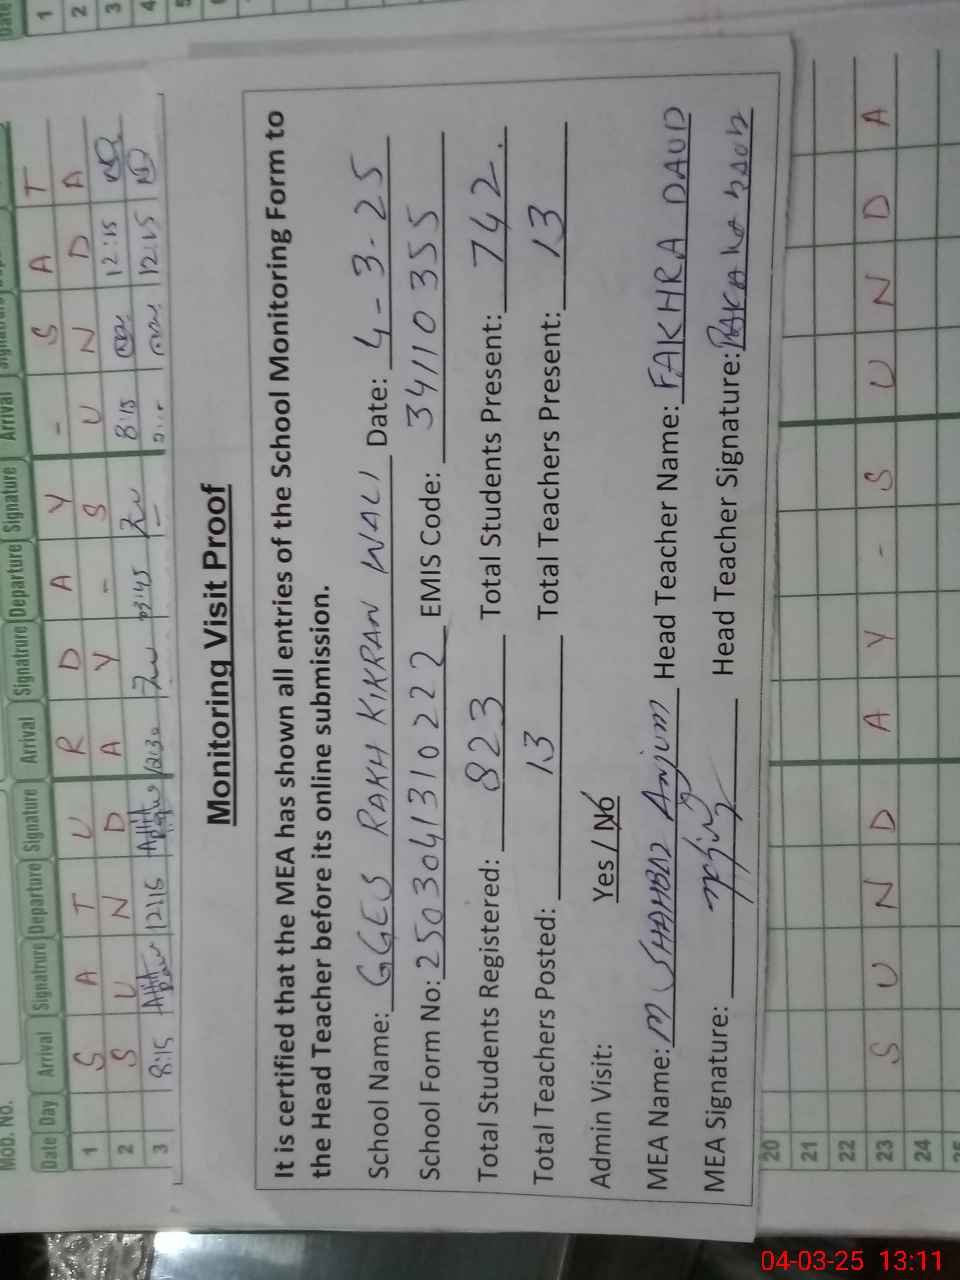 Monitoring Visit Proof
It is certified that the MEA has shown all entries of the School Monitoring Form to
the Head Teacher before its online submission.
School Name: GGES RAKH KIKRAN WALI Date: 4-3-25
School Form No: 250304131022 EMIS Code: 34110355
Total Students Registered: 823 Total Students Present: 742.
Total Teachers Posted: 13 Total Teachers Present: 13
Admin Visit: Yes / No
MEA Name: M SHAHBAZ Anjum Head Teacher Name: FAKHRA DAUD
MEA Signature: Head Teacher Signature:
MOD. No.
Date Day Arrival Signatrure Departure Signature Arrival Signatrure Departure Signature Arrival
1 S A T U R D A Y - S A T
2 S U N D A Y - S U N D A
3 8:15 12:15 12:30 03:45 8:15 12:15
12:15
20
21
22
23 S U N D A Y - S U N D A
24
25
Date
1
2
3
4
5
04-03-25 13:11